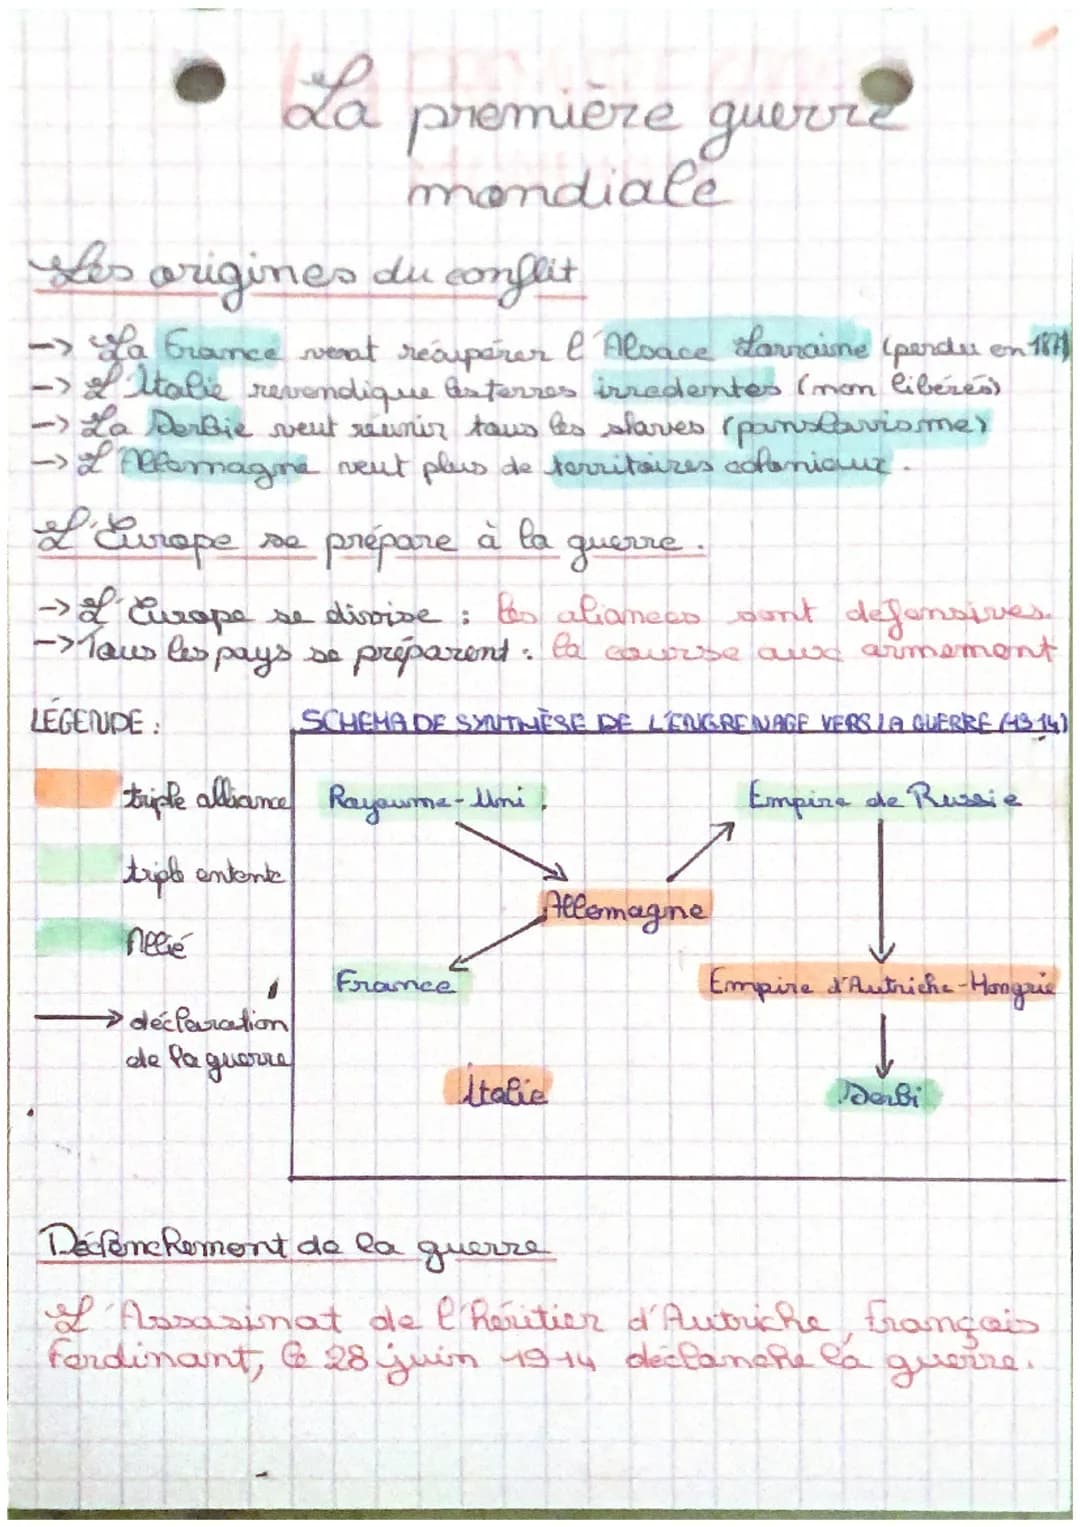 La première guerre
mondiale
Les origines du conflit
-> La France veut récupérer l'Alsace Lorraine (perdu en 1871)
-> L'Italie revendique les terres irredentes (non libérés)
-> La Serbie veut réunir tous les slaves (panslavisme)
-> L'Allemagne veut plus de territoires coloniaux.
L'Europe se prépare à la guerre.
-> L'Europe se divise : les aliances sont défensives.
-> Tous les pays se préparent : la course aux armement
LÉGENDE :
SCHEMA DE SYNTHÈSE DE L'ENGRENAGE VERS LA GUERRE (1914)
triple alliance
Royaume-Uni
Empire de Russie
triple entente
Allemagne
Allié
France
Empire d'Autriche-Hongrie
déclaration
de la guerre
Italie
Serbi
Déclenchement de la guerre
L'Assasinat de l'héritier d'Autriche, François
Ferdinant, le 28 juin 1914 déclanche la guerre.